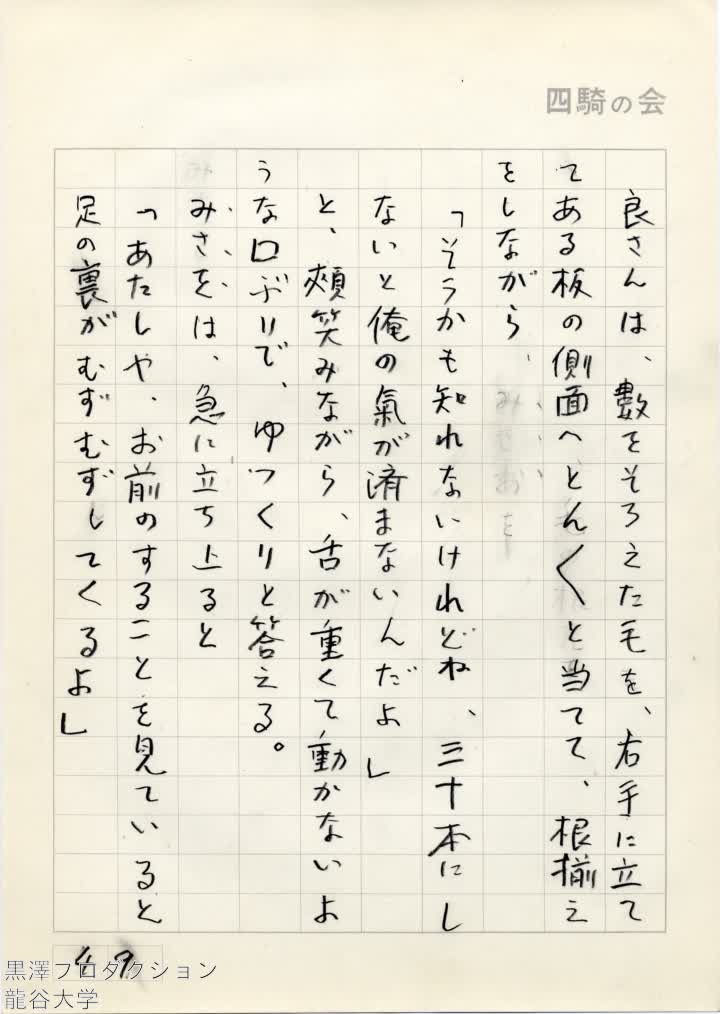 四騎の会
良さんは、数をそろえた毛を、右手に立て
てある板の側面へとん〱と当てて、根揃え
をしながら
「そうかも知れないけれどね、三十本にし
ないと俺の氣が済まないんだよ」
と、頰笑みながら、舌が重くて動かないよ
うな口ぶりで、ゆっくりと答える。
みさをは、急に立ち上ると
「あたしや、お前のすることを見ていると
足の裏がむずむずしてくるよ」
49
黒澤プロダクション
龍谷大学